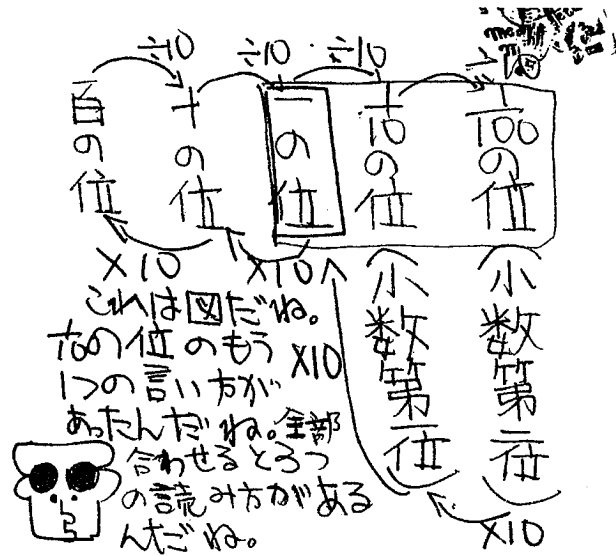 ÷10 ÷10 ÷10 ÷10
百の位
十の位
一の位
1/10の位
1/100の位
(小数第一位)
(小数第二位)
×10 ×10 ×10 ×10
これは図だね。
1/10の位のもう
1つの言い方が
あったんだね。全部
合わせると3つ
の読み方がある
んだね。